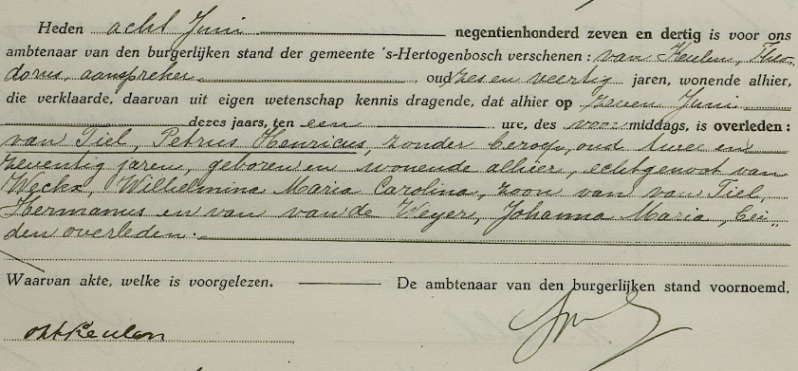 Heden acht Juni negentienhonderd zeven en dertig is voor ons
ambtenaar van den burgerlijken stand der gemeente 's-Hertogenbosch verschenen: van Keulen, Theo-
dorus, aanspreker oud zes en veertig jaren, wonende alhier,
die verklaarde, daarvan uit eigen wetenschap kennis dragende, dat alhier op zeven Juni
dezes jaars, ten een ure, des voor middags, is overleden:
van Tiel, Petrus Henricus, zonder beroep, oud twee en
zeventig jaren, geboren en wonende alhier, echtgenoot van
Weckx, Wilhelmina Maria Carolina, zoon van van Tiel,
Hermanus en van van de Weyer, Johanna Maria, bei-
den overleden.
Waarvan akte, welke is voorgelezen. De ambtenaar van den burgerlijken stand voornoemd,